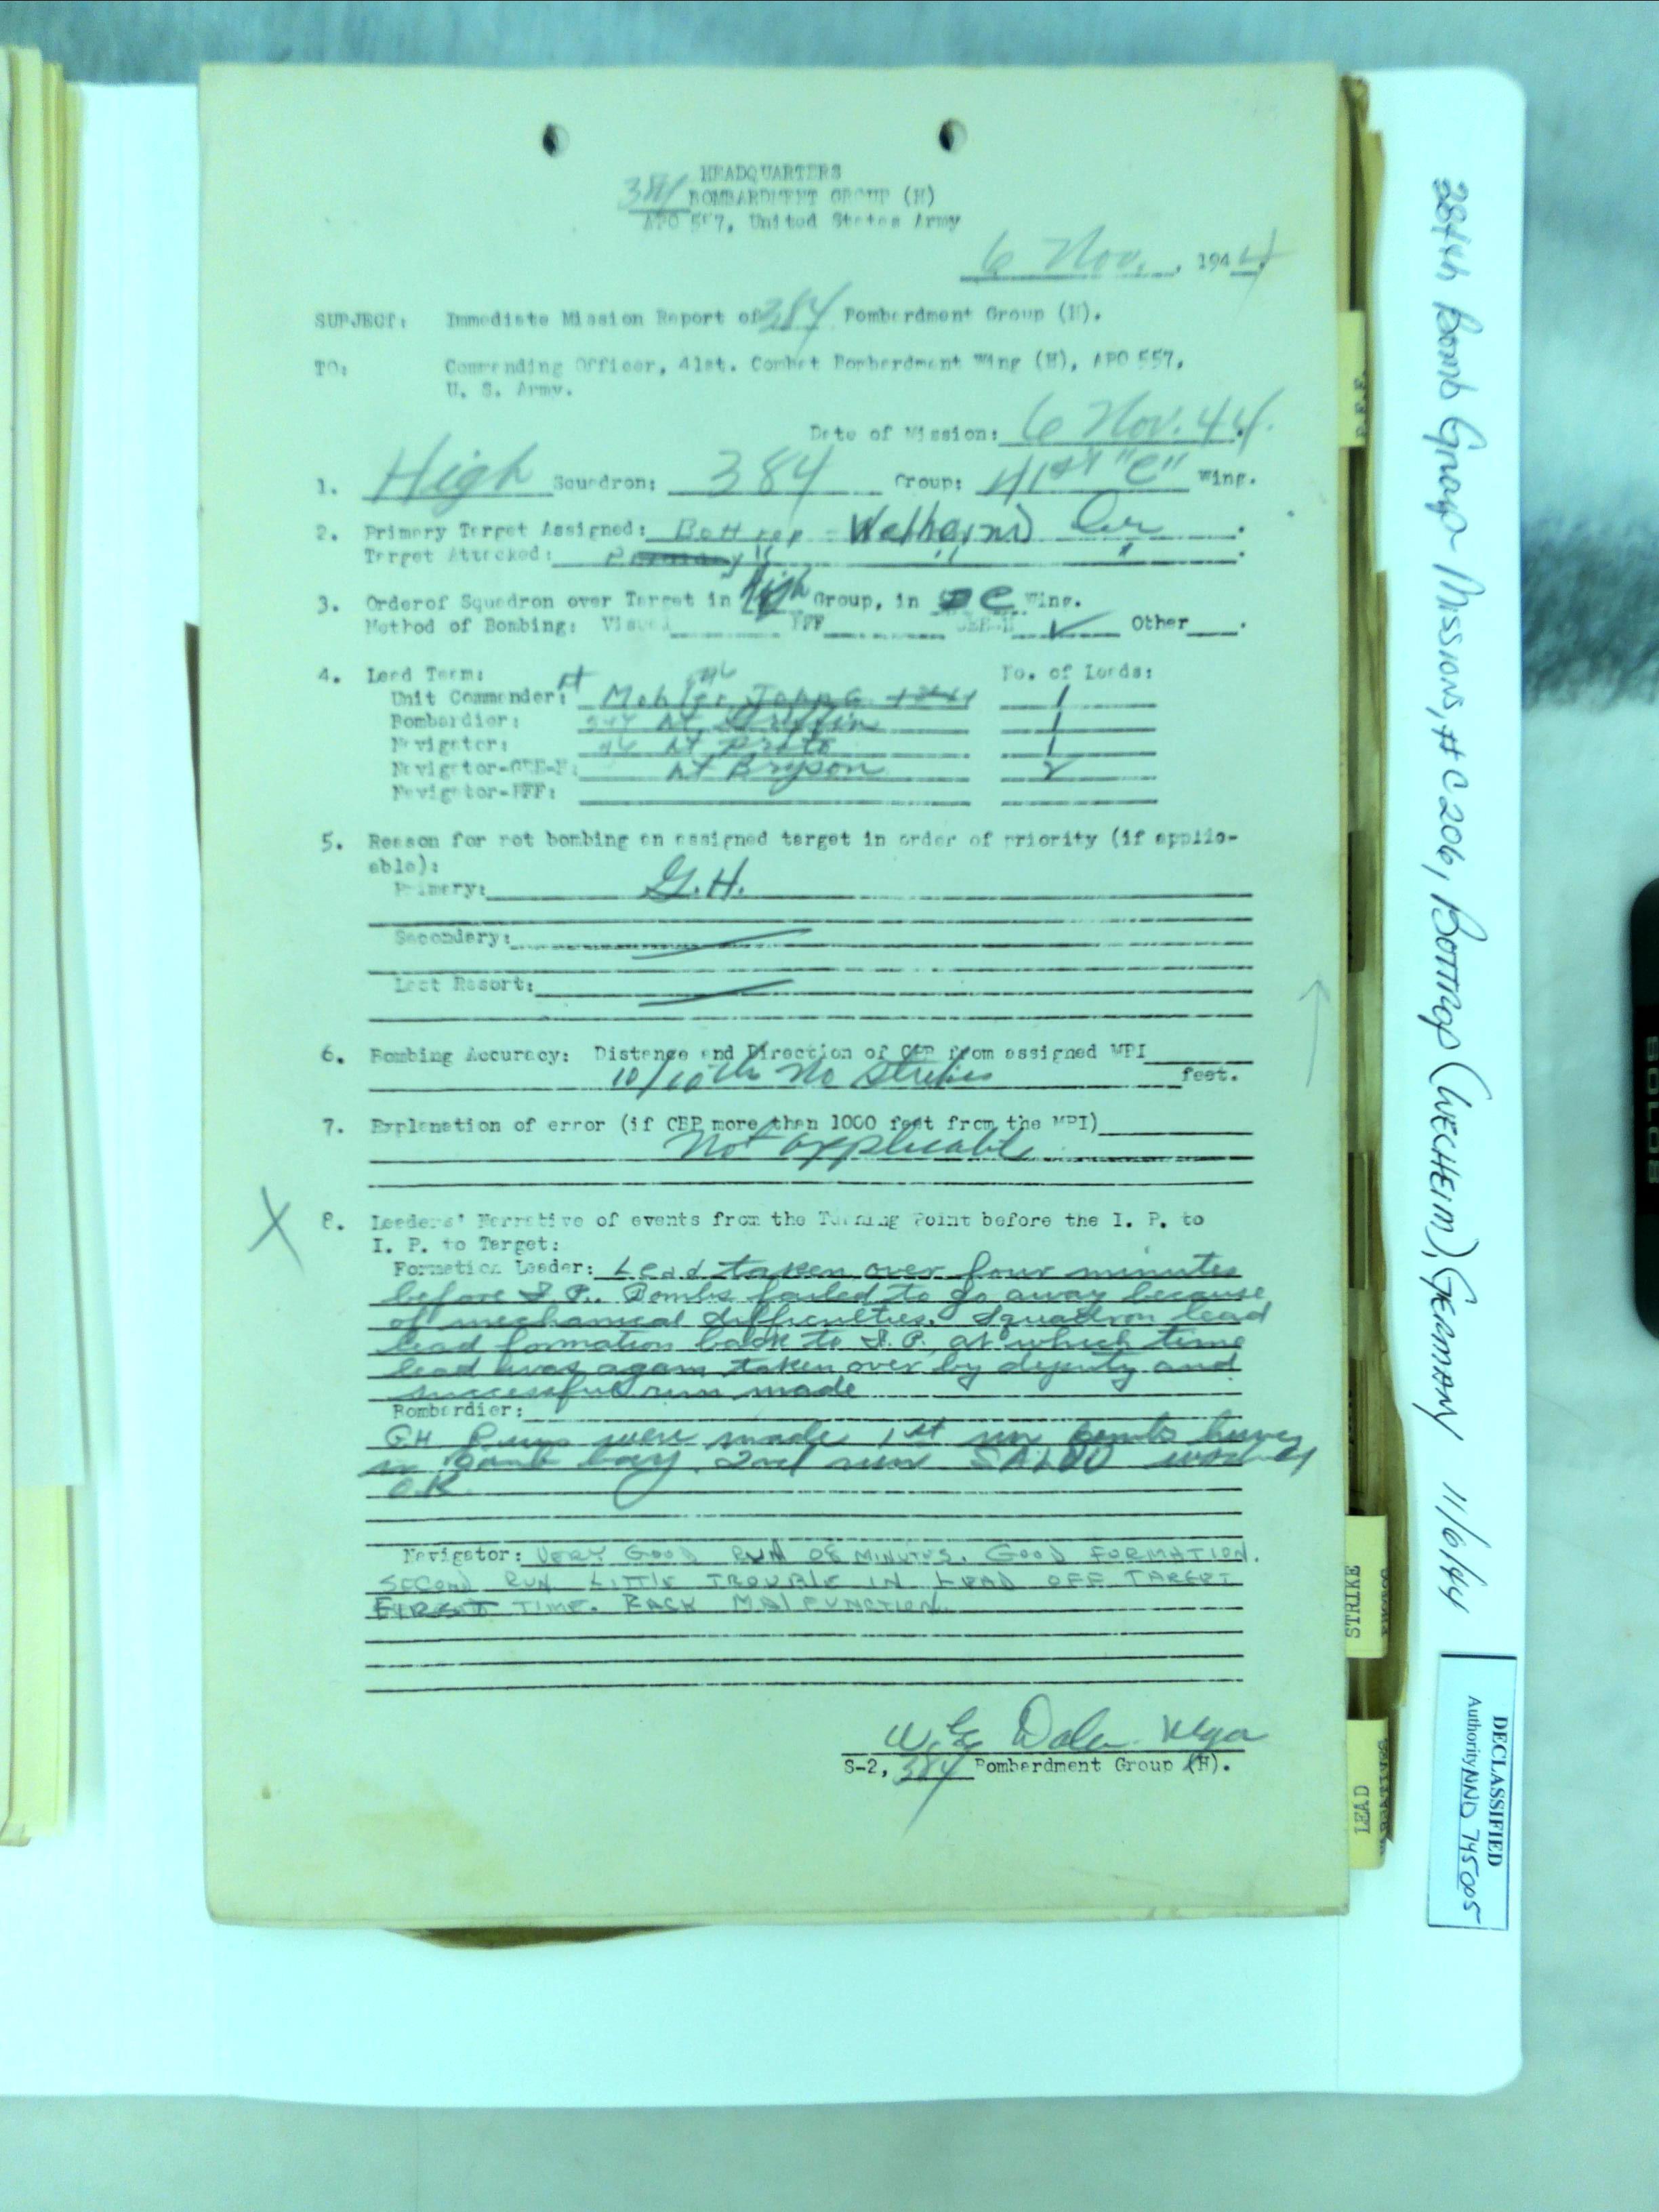 HEADQUARTERS
384 BOMBARDMENT GROUP (H)
APO 557, United States Army
6 Nov., 1944
SUBJECT: Immediate Mission Report of 384 Bombardment Group (H).
TO: Commanding Officer, 41st. Combat Bombardment Wing (H), APO 557,
U. S. Army.
Date of Mission: 6 Nov. 44.
1. High Squadron: 384 Group: 41st "C" Wing.
2. Primary Target Assigned: Bottrop -
Target Attacked: " " "
3. Orderof Squadron over Target in High Group, in C Wing.
Method of Bombing: Visual PFF GEE-H ✓ Other
4. Lead Team: No. of Leads:
Unit Commander: Lt Mohler, John G. 1
Bombardier: 544 Lt Griffin 1
Navigator: 546 Lt Proto 1
Navigator-GEE-H: Lt Bryson 2
Navigator-PFF:
5. Reason for not bombing an assigned target in order of priority (if applic-
able):
Primary: G.H.
Secondary:
Last Resort:
6. Bombing Accuracy: Distance and Direction of CBP from assigned MPI
10/10ths No Strikes feet.
7. Explanation of error (if CBP more than 1000 feet from the MPI)
Not applicable
X 8. Leaders' Narrative of events from the Turning Point before the I. P. to
I. P. to Target:
Formation Leader: Lead taken over four minutes
before I.P. Bombs failed to go away because
of mechanical difficulties. Squadron lead
lead formation back to I.P. at which time
lead was again taken over by deputy and
successful run made
Bombardier:
GH Runs were made 1st run bombs hung
in bomb bay. 2nd run SALVO worked
O.K.
Navigator: VERY GOOD RUN OF 8 MINUTES. GOOD FORMATION.
SECOND RUN LITTLE TROUBLE IN LEAD OFF TARGET
FIRST TIME. RACK MALFUNCTION.
W. E. Dolan Major
S-2, 384 Bombardment Group (H).
P.F.F.
STRIKE
PHOTOS
LEAD
NARRATIVES
384th Bomb Group Missions, #C206, BOTTROP (WELHEIM), GERMANY 11/6/44
DECLASSIFIED
Authority NND 745005